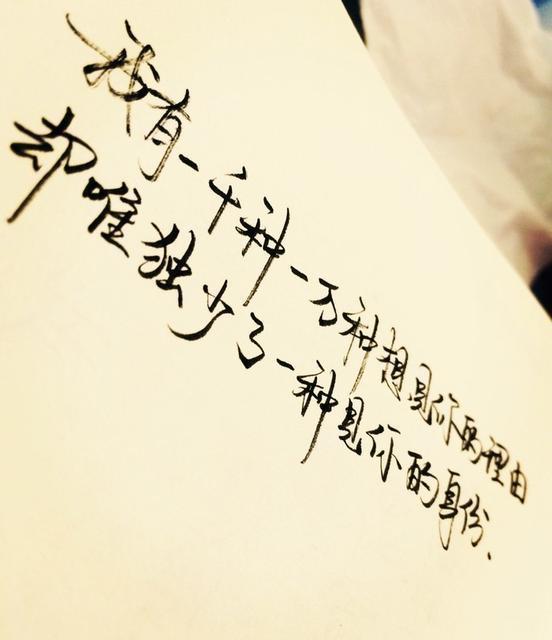 我有一千种一万种想见你的理由
却唯独少了一种见你的身份、